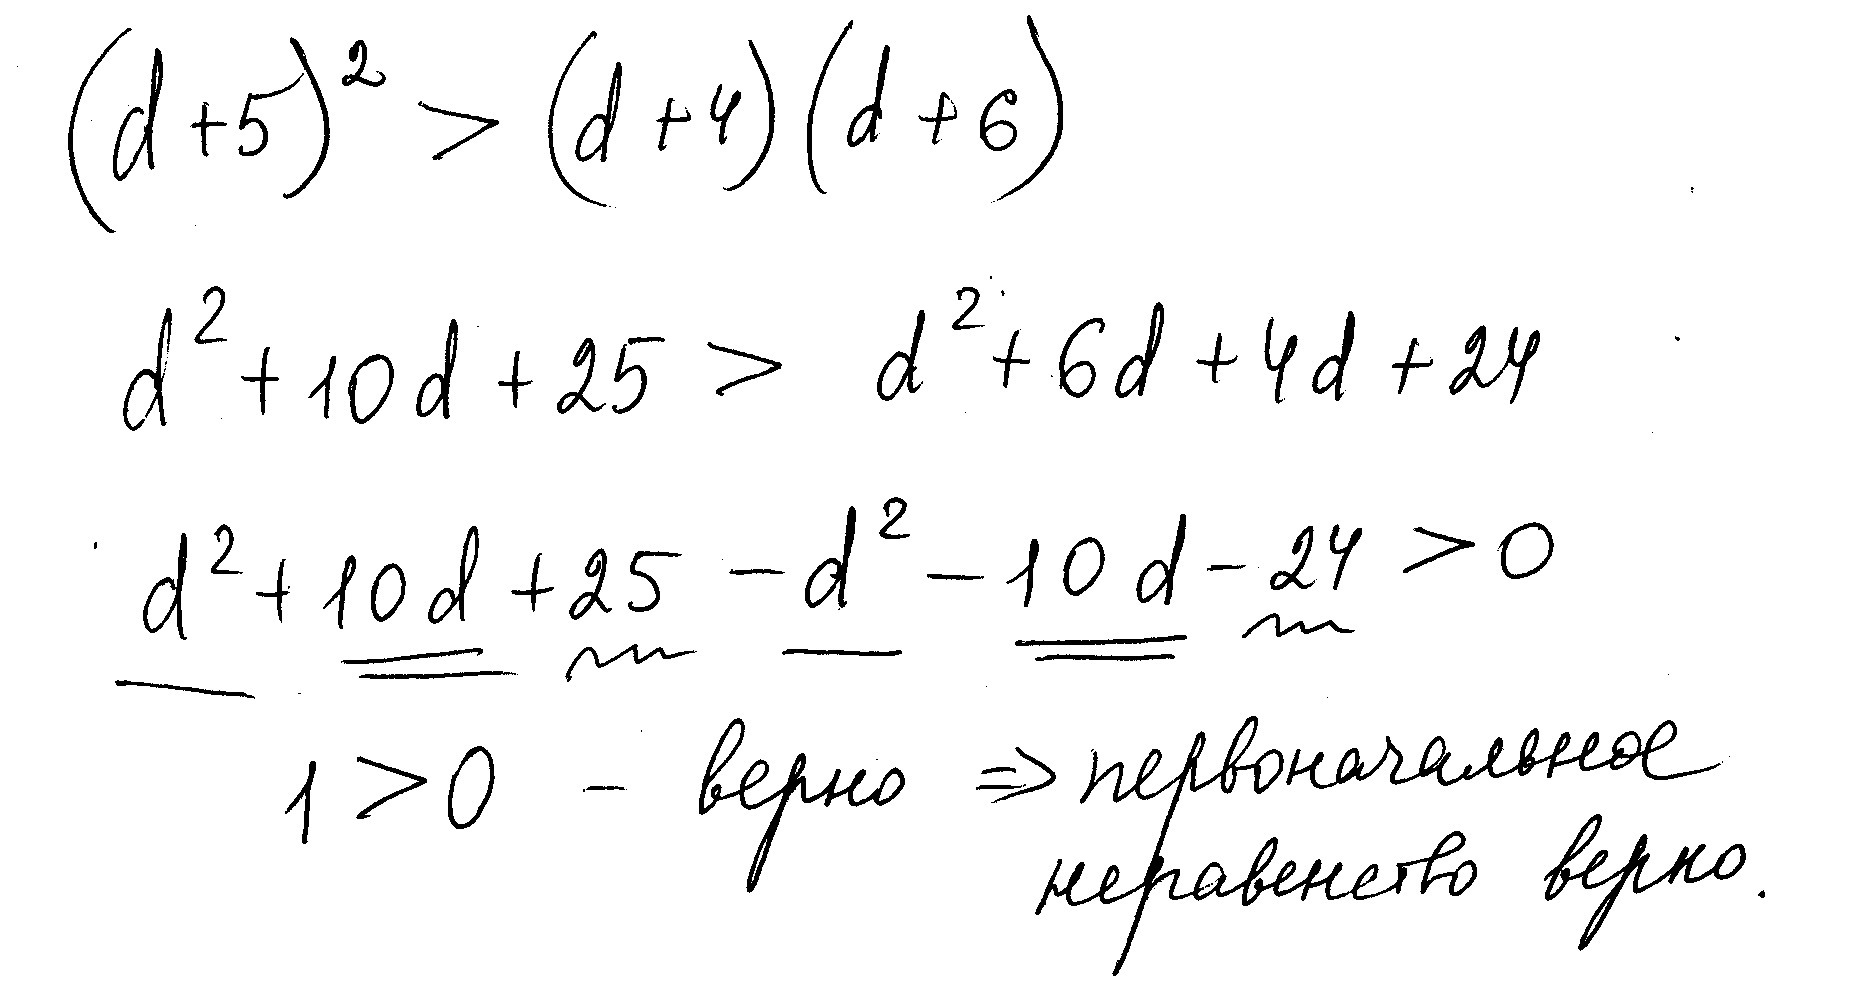 (d+5)² > (d+4)(d+6)
d² + 10d + 25 > d² + 6d + 4d + 24
d² + 10d + 25 - d² - 10d - 24 > 0
1 > 0 - верно ⇒ первоначальное
неравенство верно.